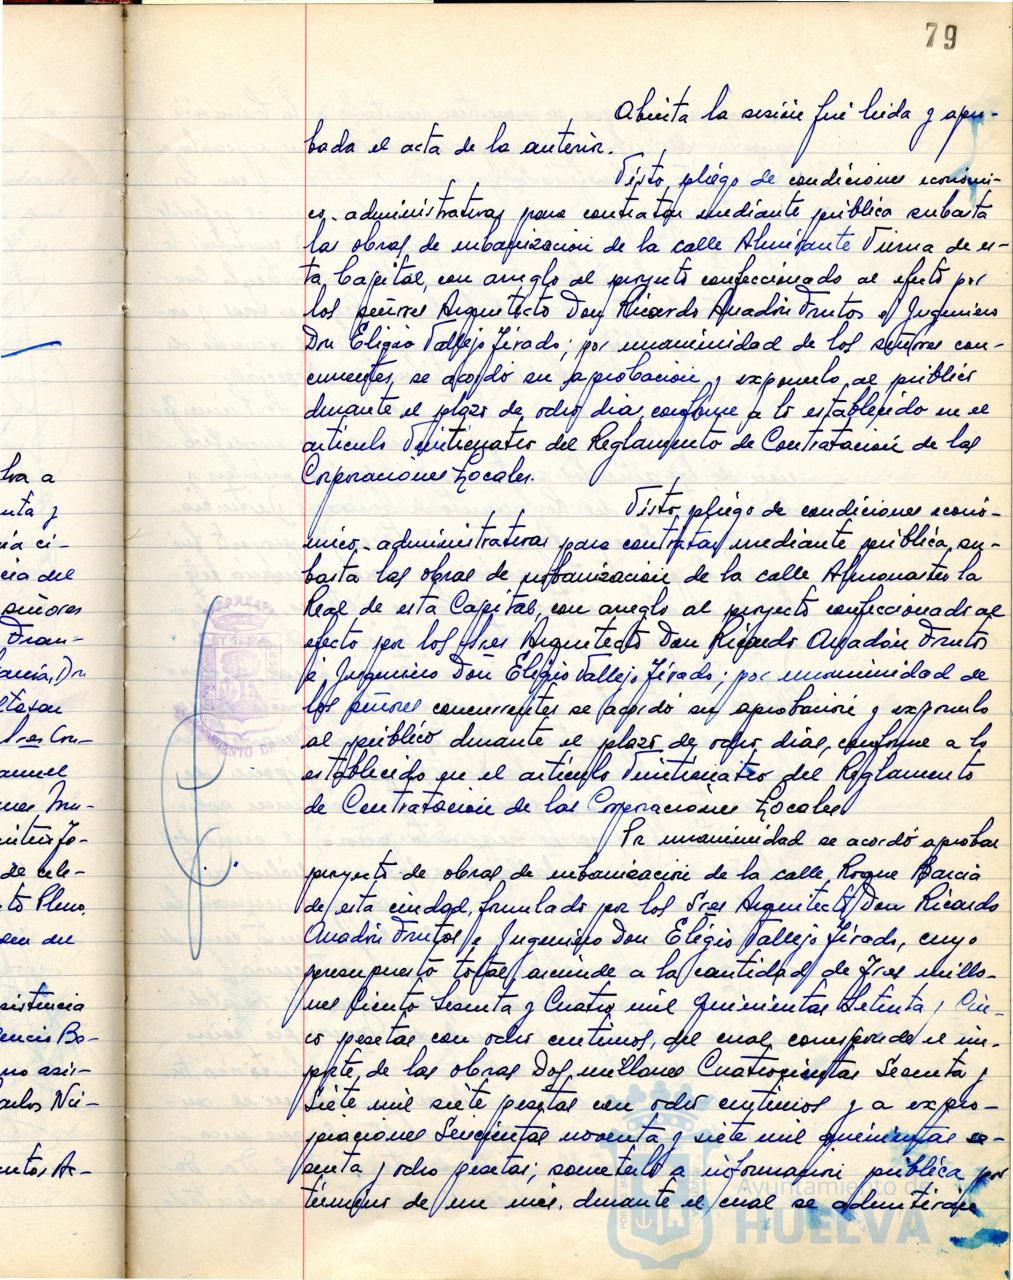 79
Abierta la sesión fué leida y apro-
bada el acta de la anterior.
Visto, pliego de condiciones económi-
co-administrativas para contratar mediante pública subasta
las obras de urbanización de la calle Almirante Pierna de es-
ta Capital, con arreglo al proyecto confeccionado al efecto por
los señores Arquitecto Don Ricardo Anadón Frutos e Ingeniero
Don Eligio Vallejo Jirado; por unanimidad de los señores con-
currentes, se acordó su aprobación y exponerlo al público
durante el plazo de ocho dias, conforme a lo establecido en el
articulo Veinticuatro del Reglamento de Contratación de las
Corporaciones Locales.
Visto, pliego de condiciones econó-
mico-administrativas para contratar mediante pública su-
basta las obras de urbanización de la calle Almonaster la
Real de esta Capital, con arreglo al proyecto confeccionado al
efecto por los Sres Arquitecto Don Ricardo Anadón Frutos
e Ingeniero Don Eligio Vallejo Jirado; por unanimidad de
los señores concurrentes se acordó su aprobación y exponerlo
al público durante el plazo de ocho dias, conforme a lo
establecido en el artículo Veinticuatro del Reglamento
de Contratación de las Corporaciones Locales.
Por unanimidad se acordó aprobar
proyecto de obras de urbanización de la calle Roque Barcia
de esta ciudad, formulado por los Sres Arquitecto Don Ricardo
Anadón Frutos e Ingeniero Don Eligio Vallejo Jirado, cuyo
presupuesto total asciende a la cantidad de Tres millo-
nes Ciento Sesenta y Cuatro mil Quinientas Setenta y Cin-
co pesetas con ocho centimos, del cual corresponde el im-
porte de las obras Dos millones Cuatrocientas Sesenta y
Siete mil siete pesetas con ocho centimos y a expro-
piaciones Seiscientas noventa y siete mil quinientas se-
senta y ocho pesetas; someterlo a información pública por
término de un mes, durante el cual se admitirán
lva a
nta y
ia ci-
cia del
señores
Fran-
arcia, Don
Sres Con-
anuel
de cele-
to Pleno,
sistencia
encio Bo-
no asis-
arlos Nú-
Ayuntamiento de
HUELVA